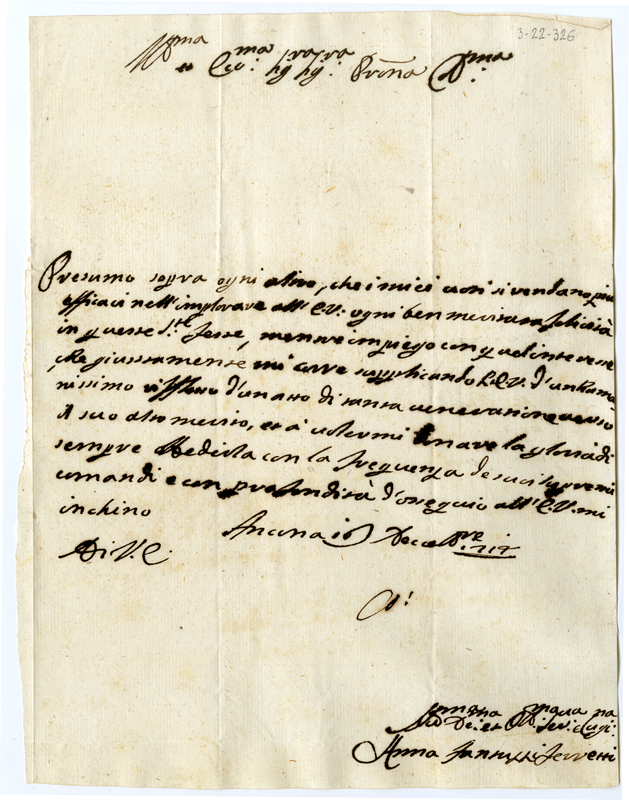 3-22-326
Ill:ma et Ecc:ma Sig:ra Sig:ra Pñna Col:ma
Presumo sopra ogni altro, che i miei voti si rendano più
efficaci nell'implorare all'E.V. ogni ben meritata felicità
in queste S.te Feste, mentre impiego con quel interesse
che giustamente mi corre supplicando L'E.V. d'un huma=
nissimo riflesso d'un atto di tanta veneratione verso
il suo alto merito, et à volermi
la gloria di
sempre Obedirla con la frequenza de suoi supremi
comandi e con profondità d'ossequio all'E.V. mi
inchino
Ancona 16 Decembre
Di V.E.
Um:ma Dev:ma et Obl:ma Ser:
Anna Fantuzzi Ferretti